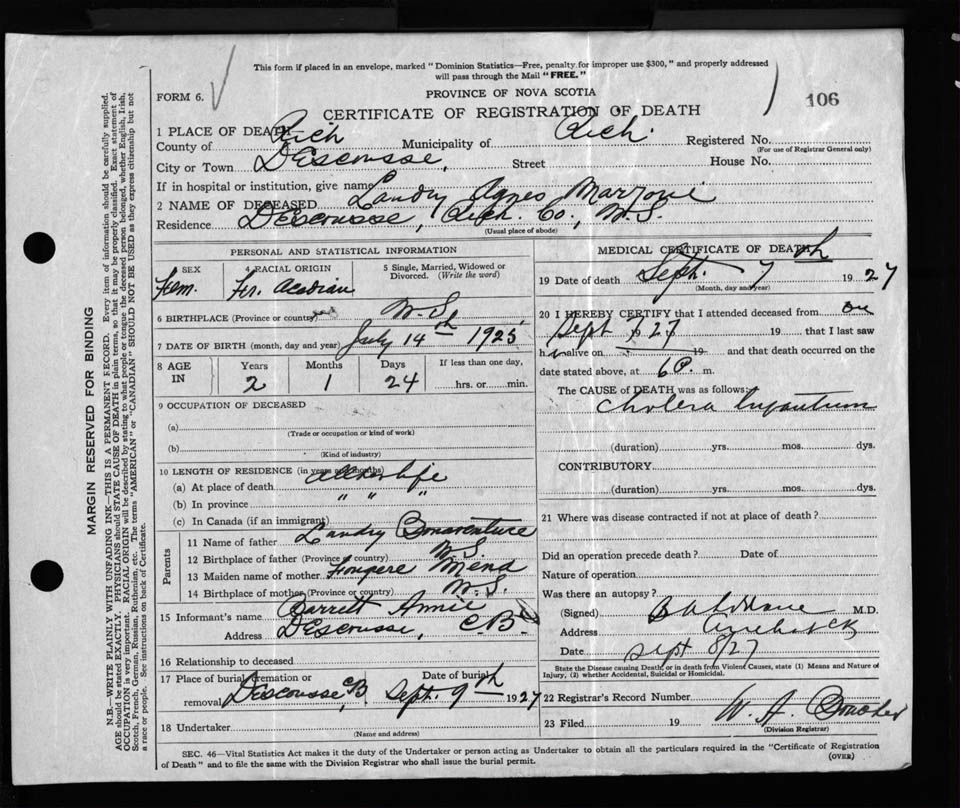 This form if placed in an envelope, marked "Dominion Statistics—Free, penalty for improper use $300," and properly addressed
will pass through the Mail "FREE."
PROVINCE OF NOVA SCOTIA
FORM 6.
106
CERTIFICATE OF REGISTRATION OF DEATH
1 PLACE OF DEATH
County of Rich Municipality of Rich. Registered No.
(For use of Registrar General only)
City or Town DEscousse, Street House No.
If in hospital or institution, give name
2 NAME OF DECEASED Landry Agnes
Residence DEscousse, Rich. Co., N.S.
(Usual place of abode)
PERSONAL AND STATISTICAL INFORMATION
3 SEX Fem.
4 RACIAL ORIGIN Fr. Acadian
5 Single, Married, Widowed or Divorced. (Write the word)
6 BIRTHPLACE (Province or country) N.S.
7 DATE OF BIRTH (month, day and year) July 14th 1925
8 AGE IN Years 2 Months 1 Days 24 If less than one day, hrs. or min.
9 OCCUPATION OF DECEASED
(a)
(Trade or occupation or kind of work)
(b)
(Kind of industry)
10 LENGTH OF RESIDENCE (in years and months)
(a) At place of death All her life
(b) In province " " "
(c) In Canada (if an immigrant)
Parents
11 Name of father Landry Bonaventure
12 Birthplace of father (Province or country) N.S.
13 Maiden name of mother Fougere Mena
14 Birthplace of mother (Province or country) N.S.
15 Informant's name Barrett Annie
Address DEscousse, C.B.
16 Relationship to deceased
17 Place of burial, cremation or removal DEscousse C.B. Date of burial Sept. 9th 1927
18 Undertaker
(Name and address)
MEDICAL CERTIFICATE OF DEATH
19 Date of death Sept. 7 1927
(Month, day and year)
20 I HEREBY CERTIFY that I attended deceased from on
Sept 7 27 19 that I last saw
h alive on 19 and that death occurred on the
date stated above, at 6 P. m.
The CAUSE of DEATH was as follows:
Cholera Infantum
(duration) yrs. mos. dys.
CONTRIBUTORY
(duration) yrs. mos. dys.
21 Where was disease contracted if not at place of death?
Did an operation precede death? Date of
Nature of operation
Was there an autopsy?
(Signed) M.D.
Address Arichat CB
Date Sept 8/27
State the Disease causing Death, or in death from Violent Causes, state (1) Means and Nature of
Injury, (2) whether Accidental, Suicidal or Homicidal.
22 Registrar's Record Number
23 Filed 19 W. A.
(Division Registrar)
SEC. 46—Vital Statistics Act makes it the duty of the Undertaker or person acting as Undertaker to obtain all the particulars required in the "Certificate of Registration
of Death" and to file the same with the Division Registrar who shall issue the burial permit.
(OVER)
MARGIN RESERVED FOR BINDING
N.B.—WRITE PLAINLY WITH UNFADING INK—THIS IS A PERMANENT RECORD. Every item of information should be carefully supplied.
AGE should be stated EXACTLY. PHYSICIANS should STATE CAUSE OF DEATH in plain terms, so that it may be properly classified. Exact statement of
OCCUPATION is very important. RACIAL ORIGIN will be described by stating to what people or tongue the deceased person belonged, whether English, Irish,
Scotch, French, German, Russian, Ruthenian, etc. The terms "AMERICAN" or "CANADIAN" SHOULD NOT BE USED as they express citizenship but not
a race or people. See instructions on back of Certificate.